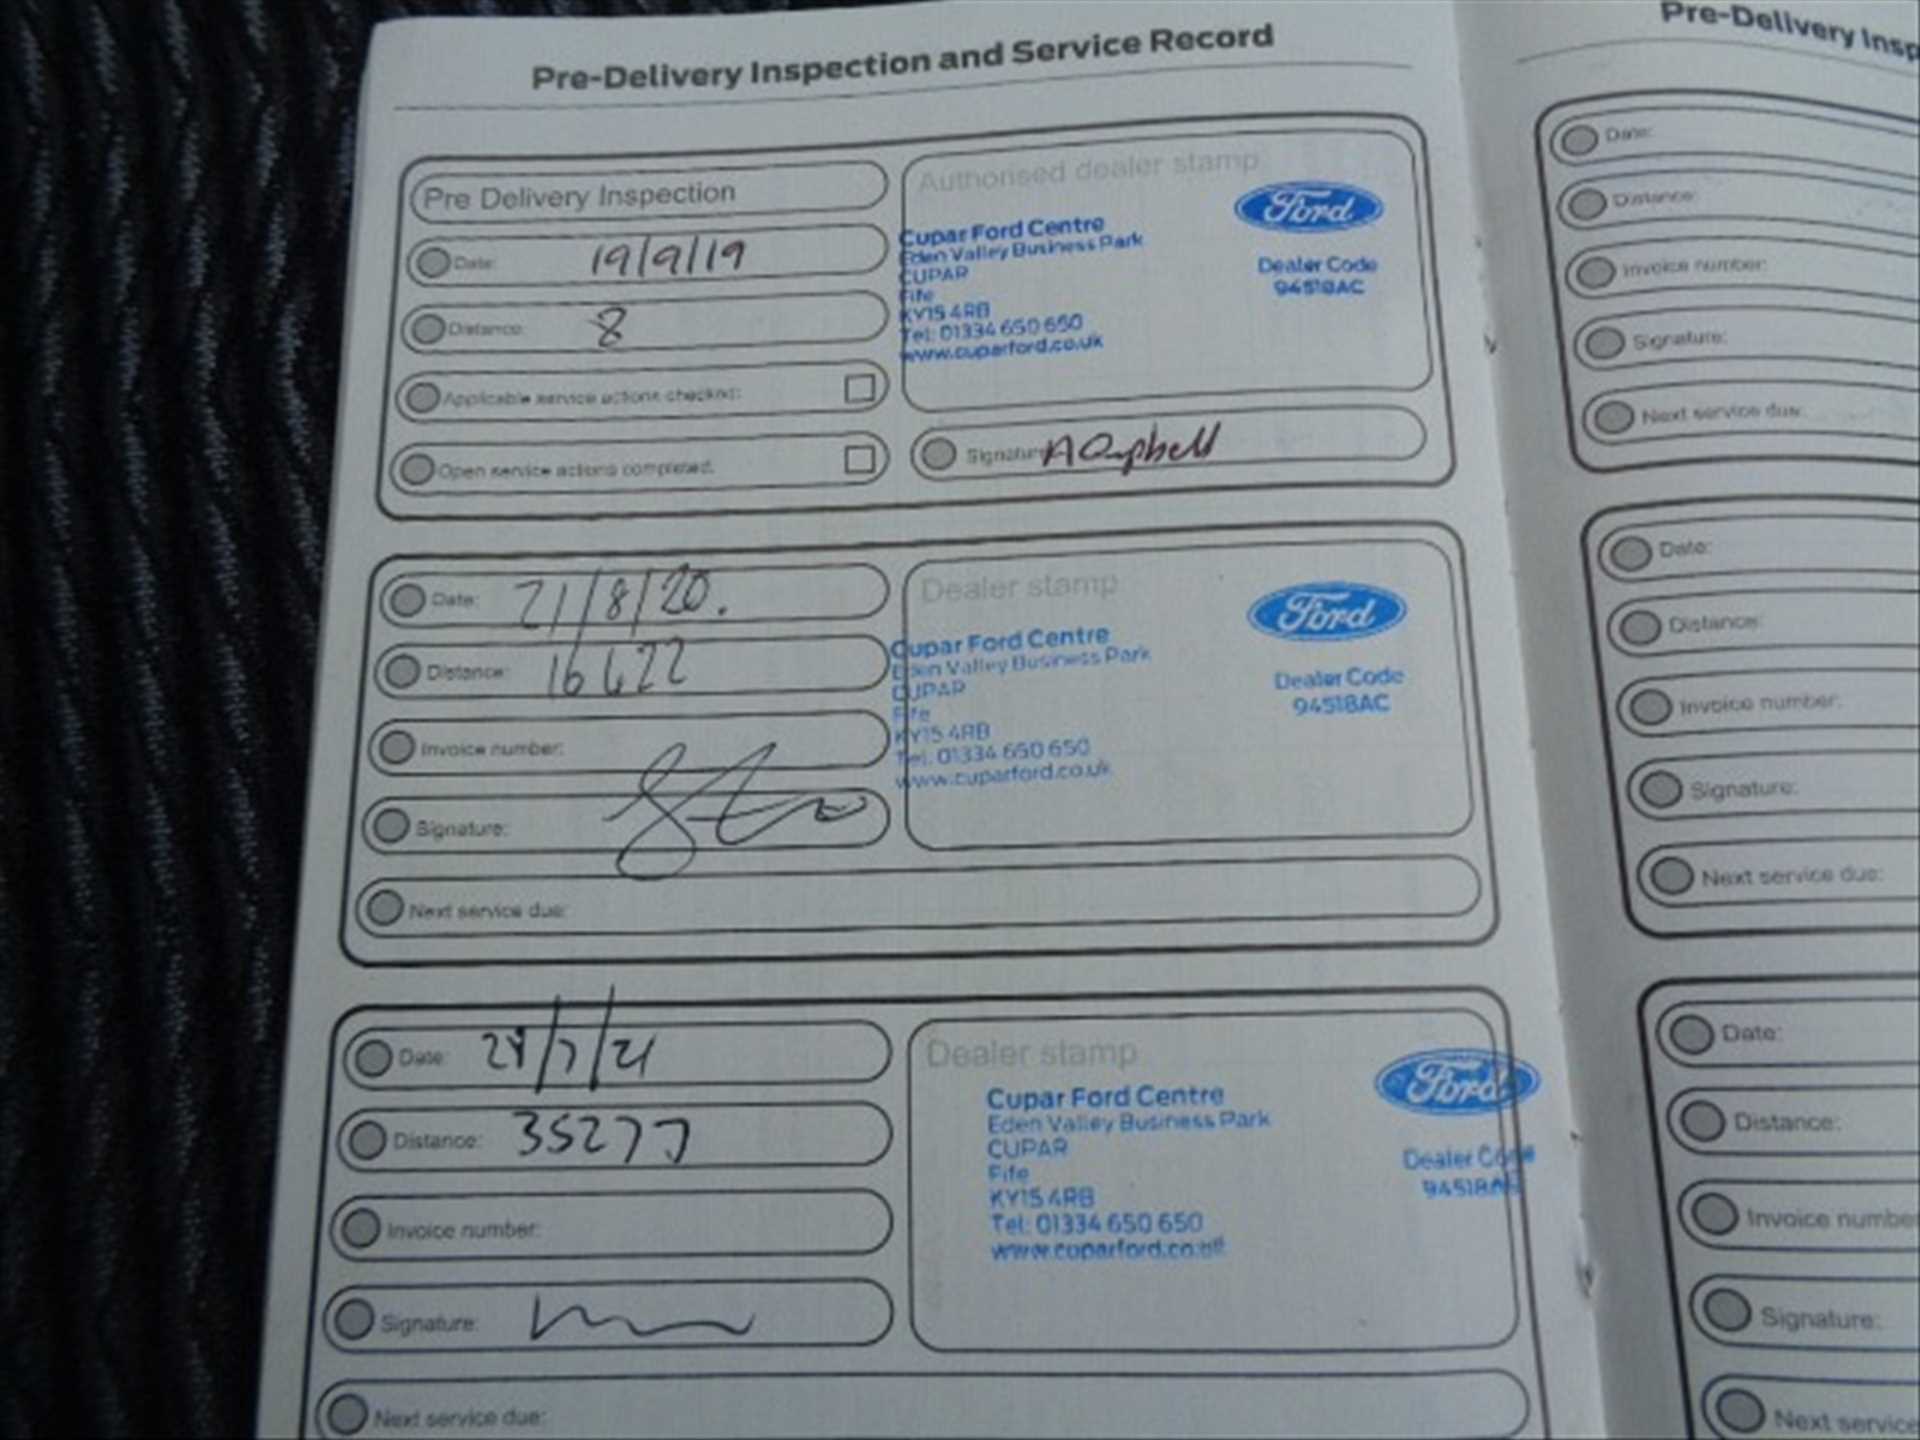 Pre-Delivery Inspection and Service Record
Pre Delivery Inspection
Date: 19/9/19
Distance: 8
Applicable service actions checked:
Open service actions completed.
Authorised dealer stamp
Ford
Cupar Ford Centre
Eden Valley Business Park
CUPAR
Fife
KY15 4RB
Tel: 01334 650 650
www.cuparford.co.uk
Dealer Code
94518AC
Signature: A Campbell
Date: 21/8/20.
Distance: 16622
Invoice number:
Signature:
Next service due:
Dealer stamp
Ford
Cupar Ford Centre
Eden Valley Business Park
CUPAR
Fife
KY15 4RB
Tel: 01334 650 650
www.cuparford.co.uk
Dealer Code
94518AC
Date: 29/7/21
Distance: 35277
Invoice number:
Signature:
Next service due:
Dealer stamp
Ford
Cupar Ford Centre
Eden Valley Business Park
CUPAR
Fife
KY15 4RB
Tel: 01334 650 650
www.cuparford.co.uk
Dealer Code
94518AC
Pre-Delivery Insp
Date:
Distance:
Invoice number:
Signature:
Next service due:
Date:
Distance:
Invoice number:
Signature:
Next service due:
Date:
Distance:
Invoice number
Signature:
Next service